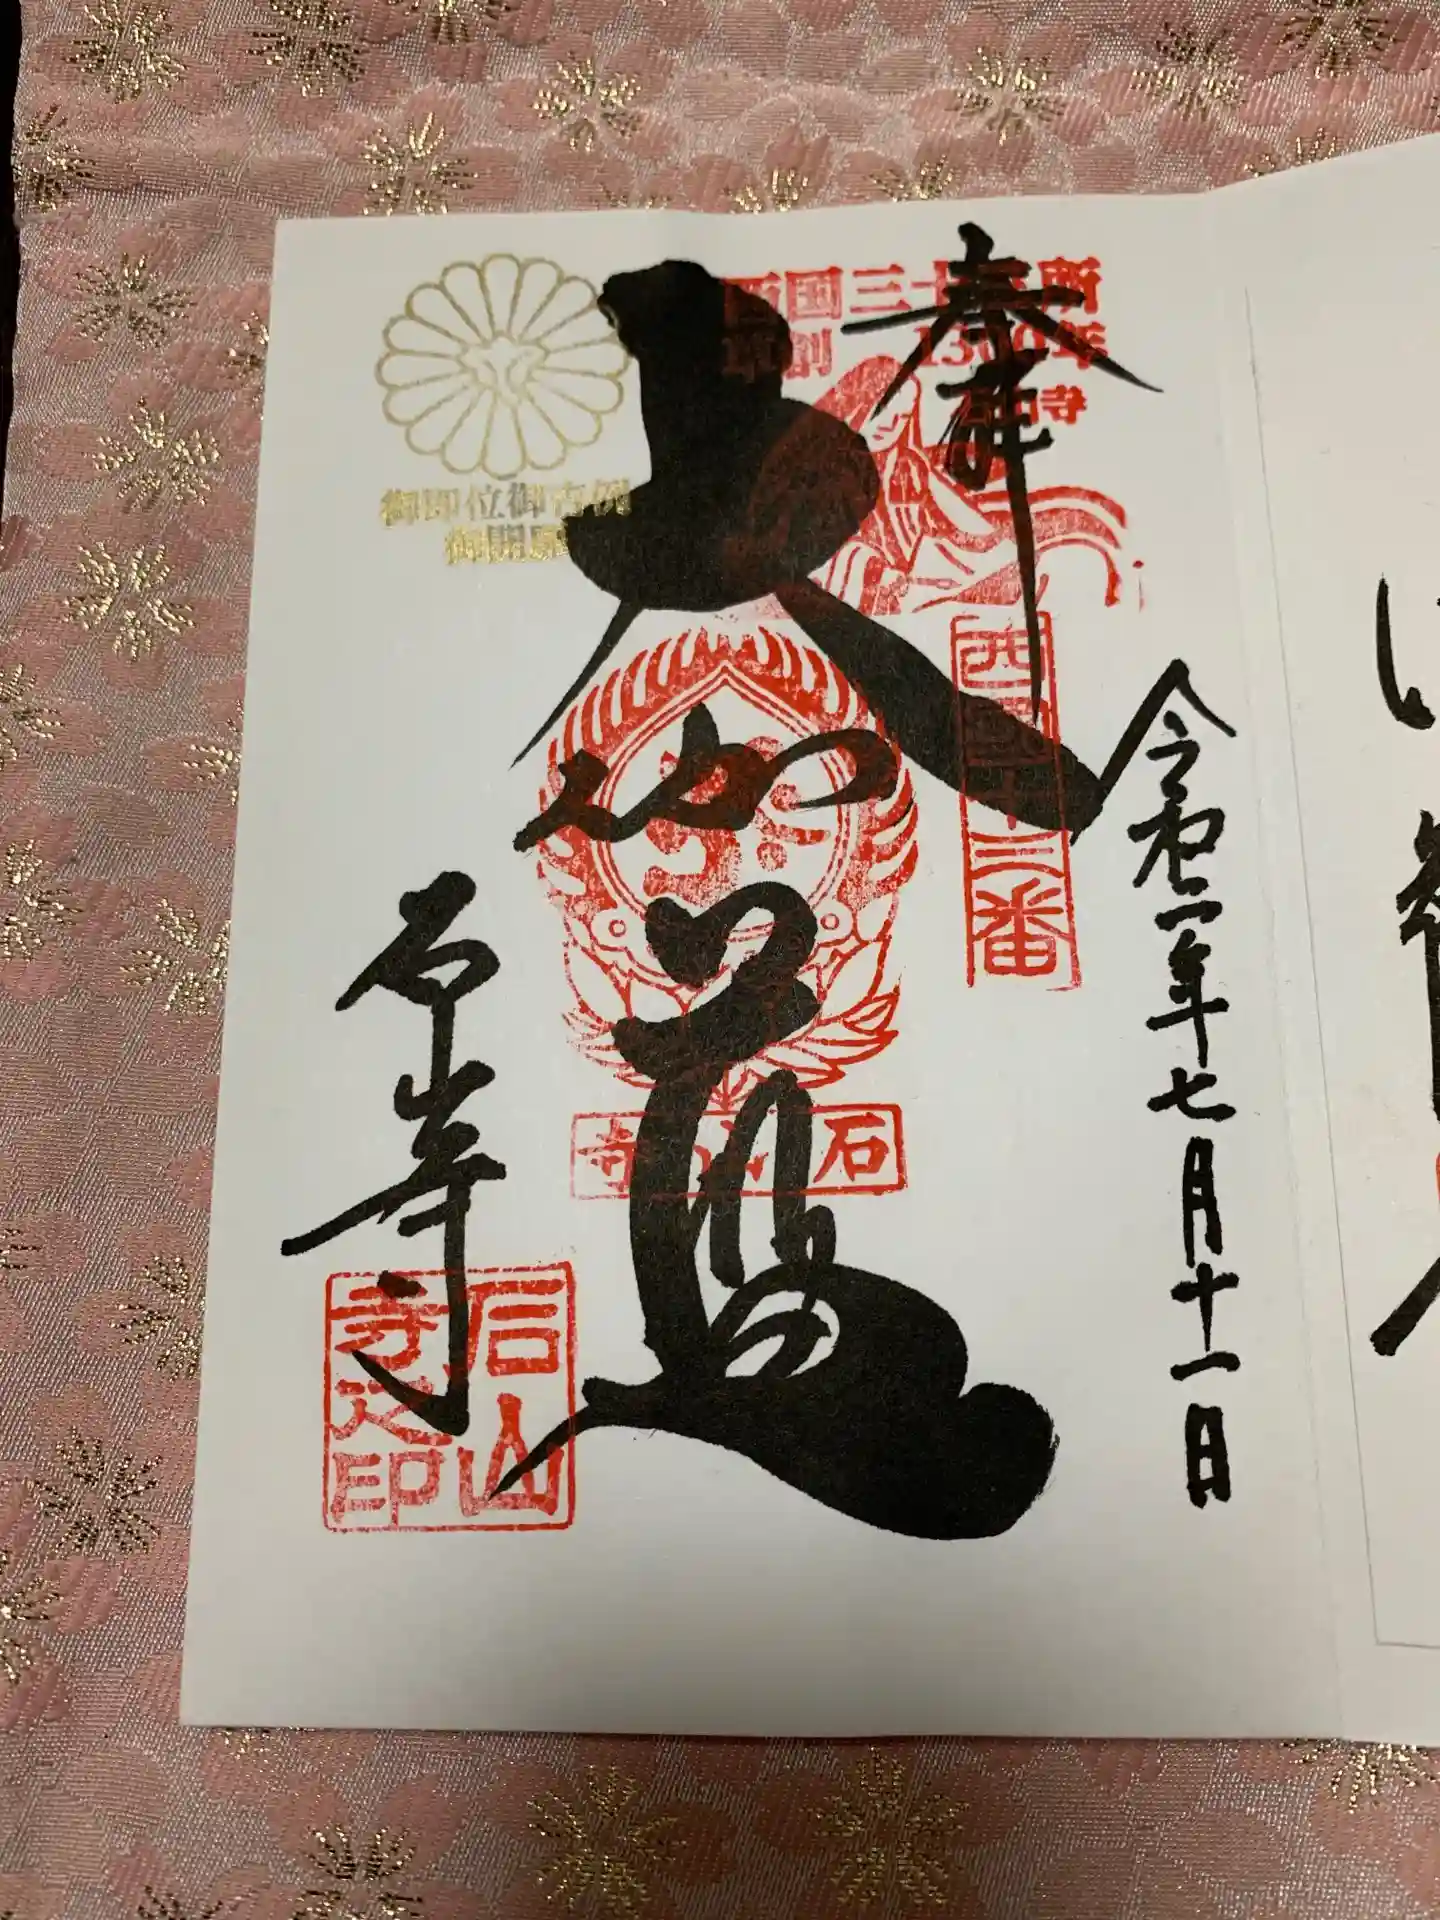 奉拝
西国三十三所
草創1300年
石山寺
西国十三番
令和二年七月十一日
大伽藍
石山寺
御即位御吉例
御開扉
石山寺
石山寺之印